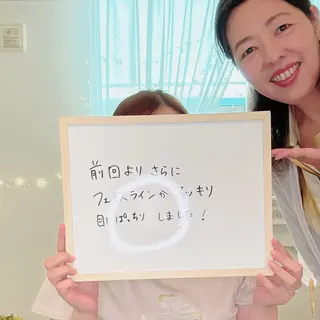 前回よりさらに
フェイスラインがスッキリ
目ぱっちりしました!